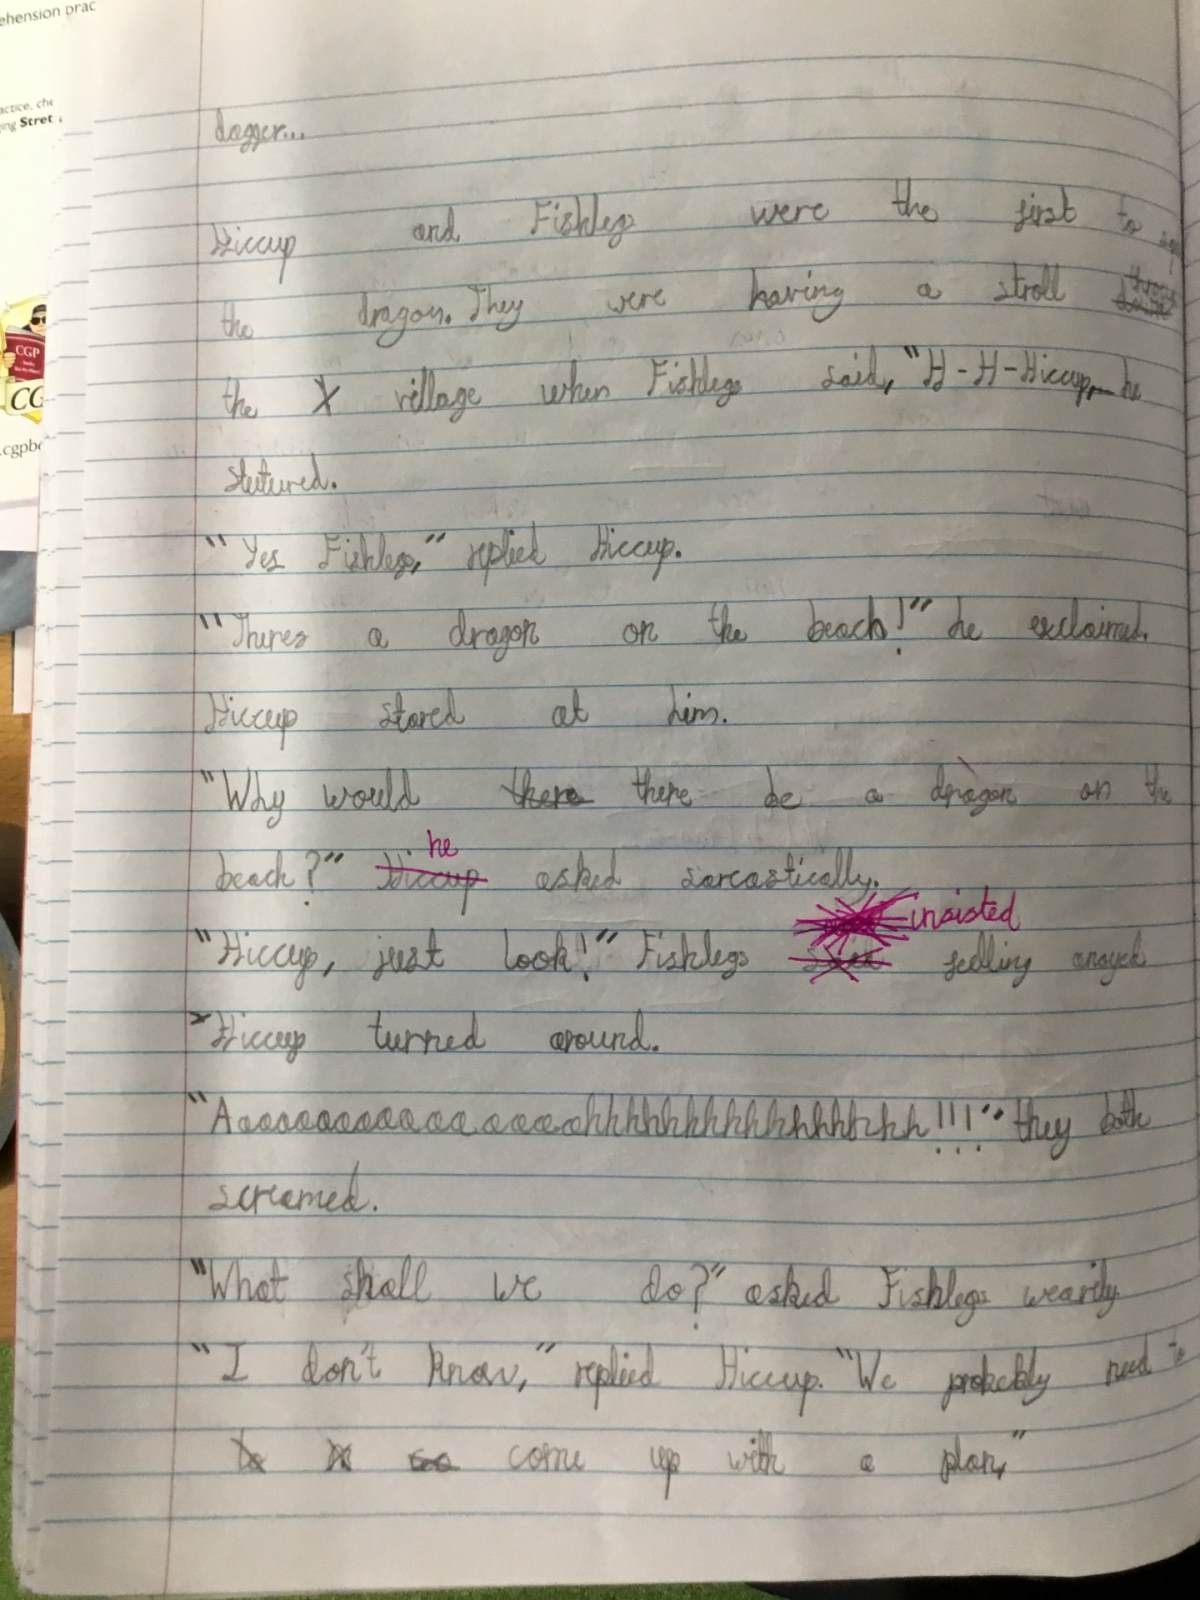 ehension prac
actice, che
ging Stret
CGP
CG
.cgpb
dagger...
Hiccup and Fishlegs were the first to
the dragon. They were having a stroll through
the village when Fishlegs said, "H-H-Hiccup, he
stutured.
"Yes Fishlegs," replied Hiccup.
"Theres a dragon on the beach!" he exclaimed.
Hiccup stared at him.
"Why would there there be a dragon on the
beach?" Hiccup he asked sarcastically.
"Hiccup, just look!" Fishlegs insisted feelling anoyed
Hiccup turned around.
"Aaaaaaaaaaaaaaaaahhhhhhhhhhhhhhhhhh!!!" they both
screamed.
"What shall we do?" asked Fishlegs wearily.
"I don't know," replied Hiccup. "We probebly need to
come up with a plan,"